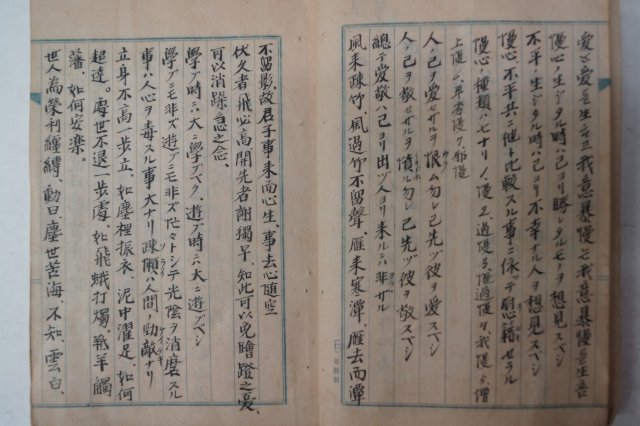 愛ハ愛ヲ生ミ我意暴慢ハ我意暴慢ヲ生ム
慢心ノ生ジタル時ハ己ヨリ勝レタルモノヲ想見スベシ
不平ノ生ジタル時ハ己ヨリ不幸ナル人ヲ想見スベシ
慢心、不平共ニ他ト比較スル事ニ依テ慰籍セラル
慢心ノ種類ハ七ナリ 1、慢 2、過慢 3、慢過慢 4、我慢 5、増
上慢 6、卑劣慢 7、邪慢
人ノ己ヲ愛セザルヲ恨ム勿レ己先ヅ彼ヲ愛スベシ
人ノ己ヲ敬セザルヲ憤ル勿レ己先ヅ彼ヲ敬スベシ
総テ愛敬ハ己ヨリ出ヅ人ヨリ来ルニハ非ザル
風来疎竹、風過竹不留聲、雁来寒潭、雁去而潭
不留影、故君子事来而心生、事去心随空
伏久者飛必高開先者謝獨早、知此可以免蹭蹬之憂、
可以消躁急之念、
學ブ時ニハ大ニ學ブベク、遊ブ時ニハ大ニ遊ブベシ
學ブニモ非ズ遊ブニモ非ズ忙々トシテ光陰ヲ消磨スル
事ハ人心ヲ毒スル事大ナリ疎懶ハ人間ノ勁敵ナリ
立身不高一歩立、如塵裡振衣、泥中濯足、如何
超達。處世不退一歩處、如飛蛾打燭、羝羊觸
藩、如何安樂。
世人為榮利纏縛、動曰、塵世苦海、不知、雲白、